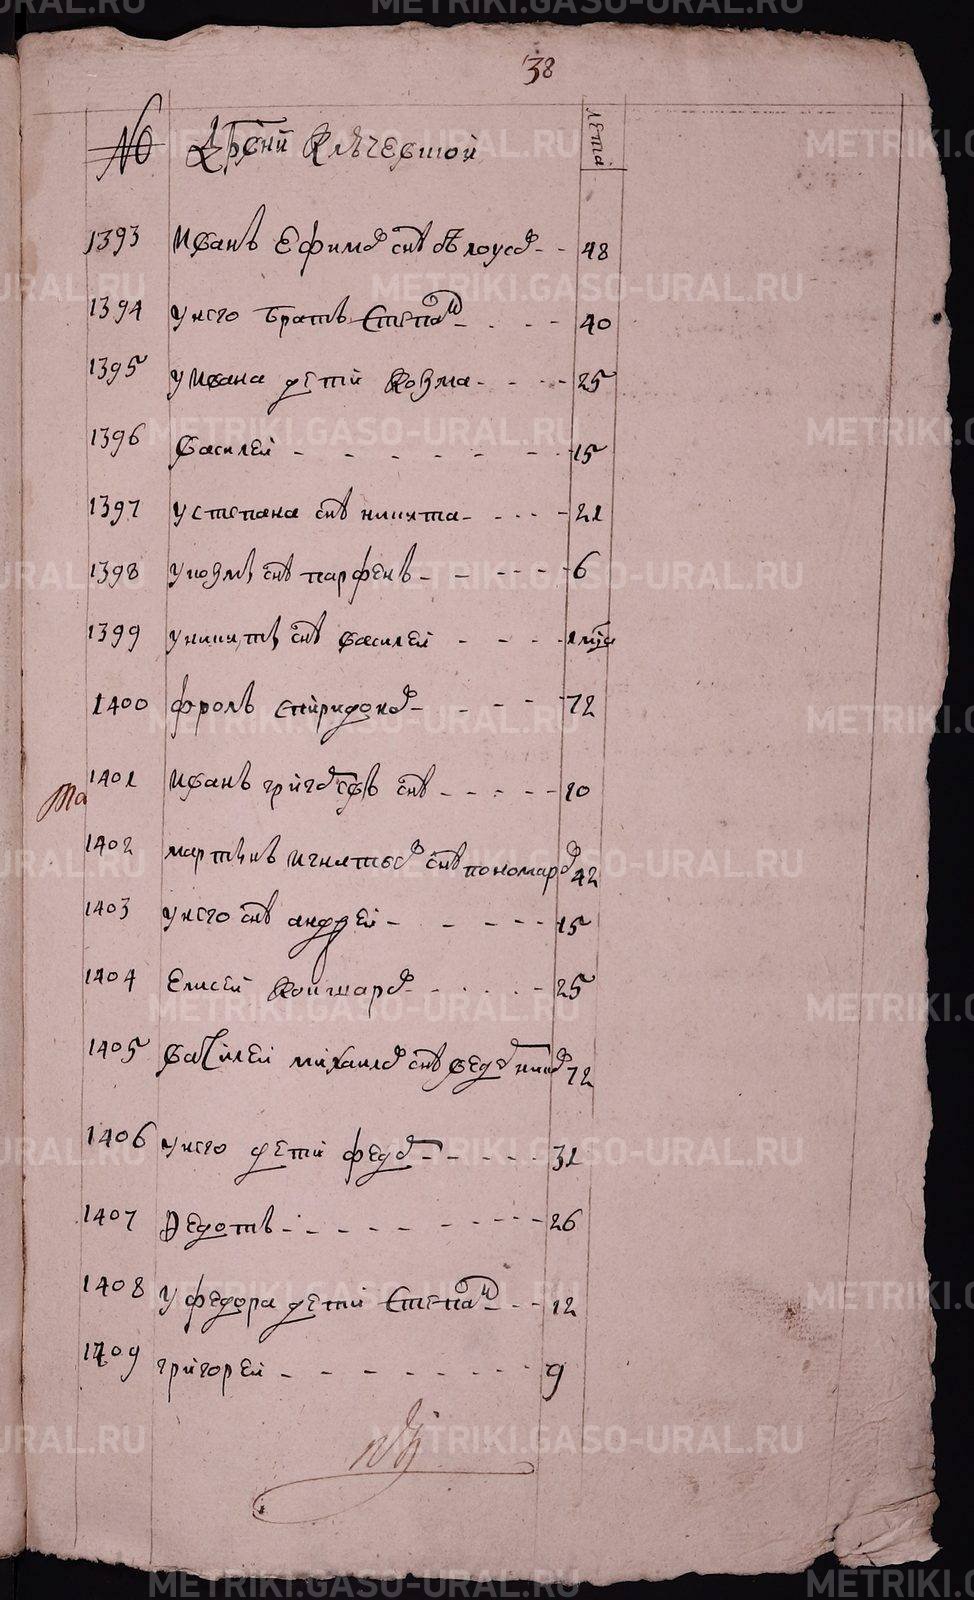 38
№ Дрвни Ключевской лета
1393 Иванъ Ефимов снъ бѣлоусов 48
1394 у него братъ Степан 40
1395 у Ивана дети Козма 25
1396 Василей 15
1397 у степана снъ никита 21
1398 у козмы снъ парфенъ 6
1399 у никиты снъ василей
1400 фролъ спиридонов 72
1401 Иванъ григорьевъ снъ 10
та
1402 мартынъ игнатьев снъ пономарев 42
1403 у него снъ андрей 15
1404 Елисей Кокшаров 25
1405 Василей михаилов снъ 72
1406 у него дети федор 31
1407 Федотъ 26
1408 у федора дети Степан 12
1409 григорей 9
METRIKI.GASO-URAL.RU